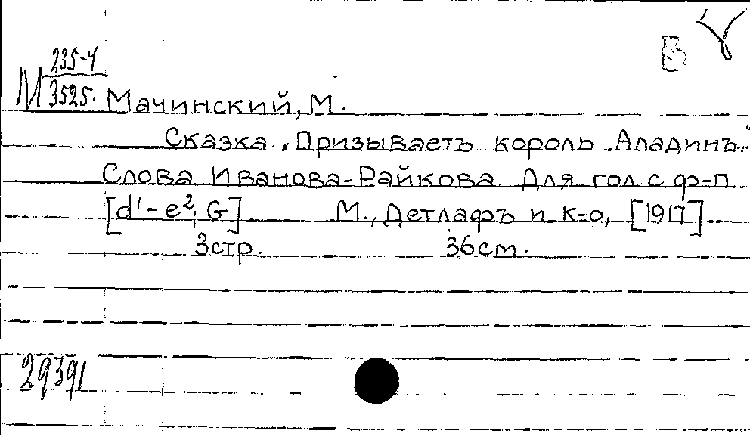 В
М 235-4
3525.
Мачинский, М.
Сказка. „Призываетъ король Аладинъ"
Слова Иванова-Райкова. Для гол. с ф-п.
[d¹-e², G] М., Детлафъ и К-о, [1917]
3стр. 36см.